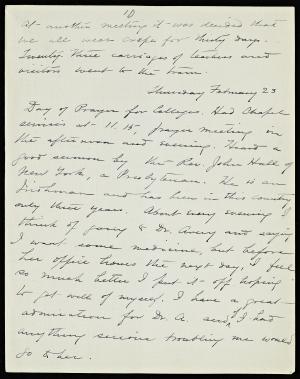 10
At another meeting it was decided that
we all wear crape for thirty days.
Twenty-three carriages of teachers and
visitors went to the train.
Thursday February 23
Day of Prayer for Colleges. Had Chapel
services at 11.15, prayer meeting in
the afternoon and evening. Heard a
good sermon by the Rev. John Hall of
New York, a Presbyterian. He is an
Irishman and has been in this country
only three years. About every evening I
think of going to Dr. Avery and saying
I want some medicine, but before
her office hours the next day, I feel
so much better I put it off hoping
to get well of myself. I have a great
admiration for Dr. A. and, if I had
anything serious troubling me would
go to her.